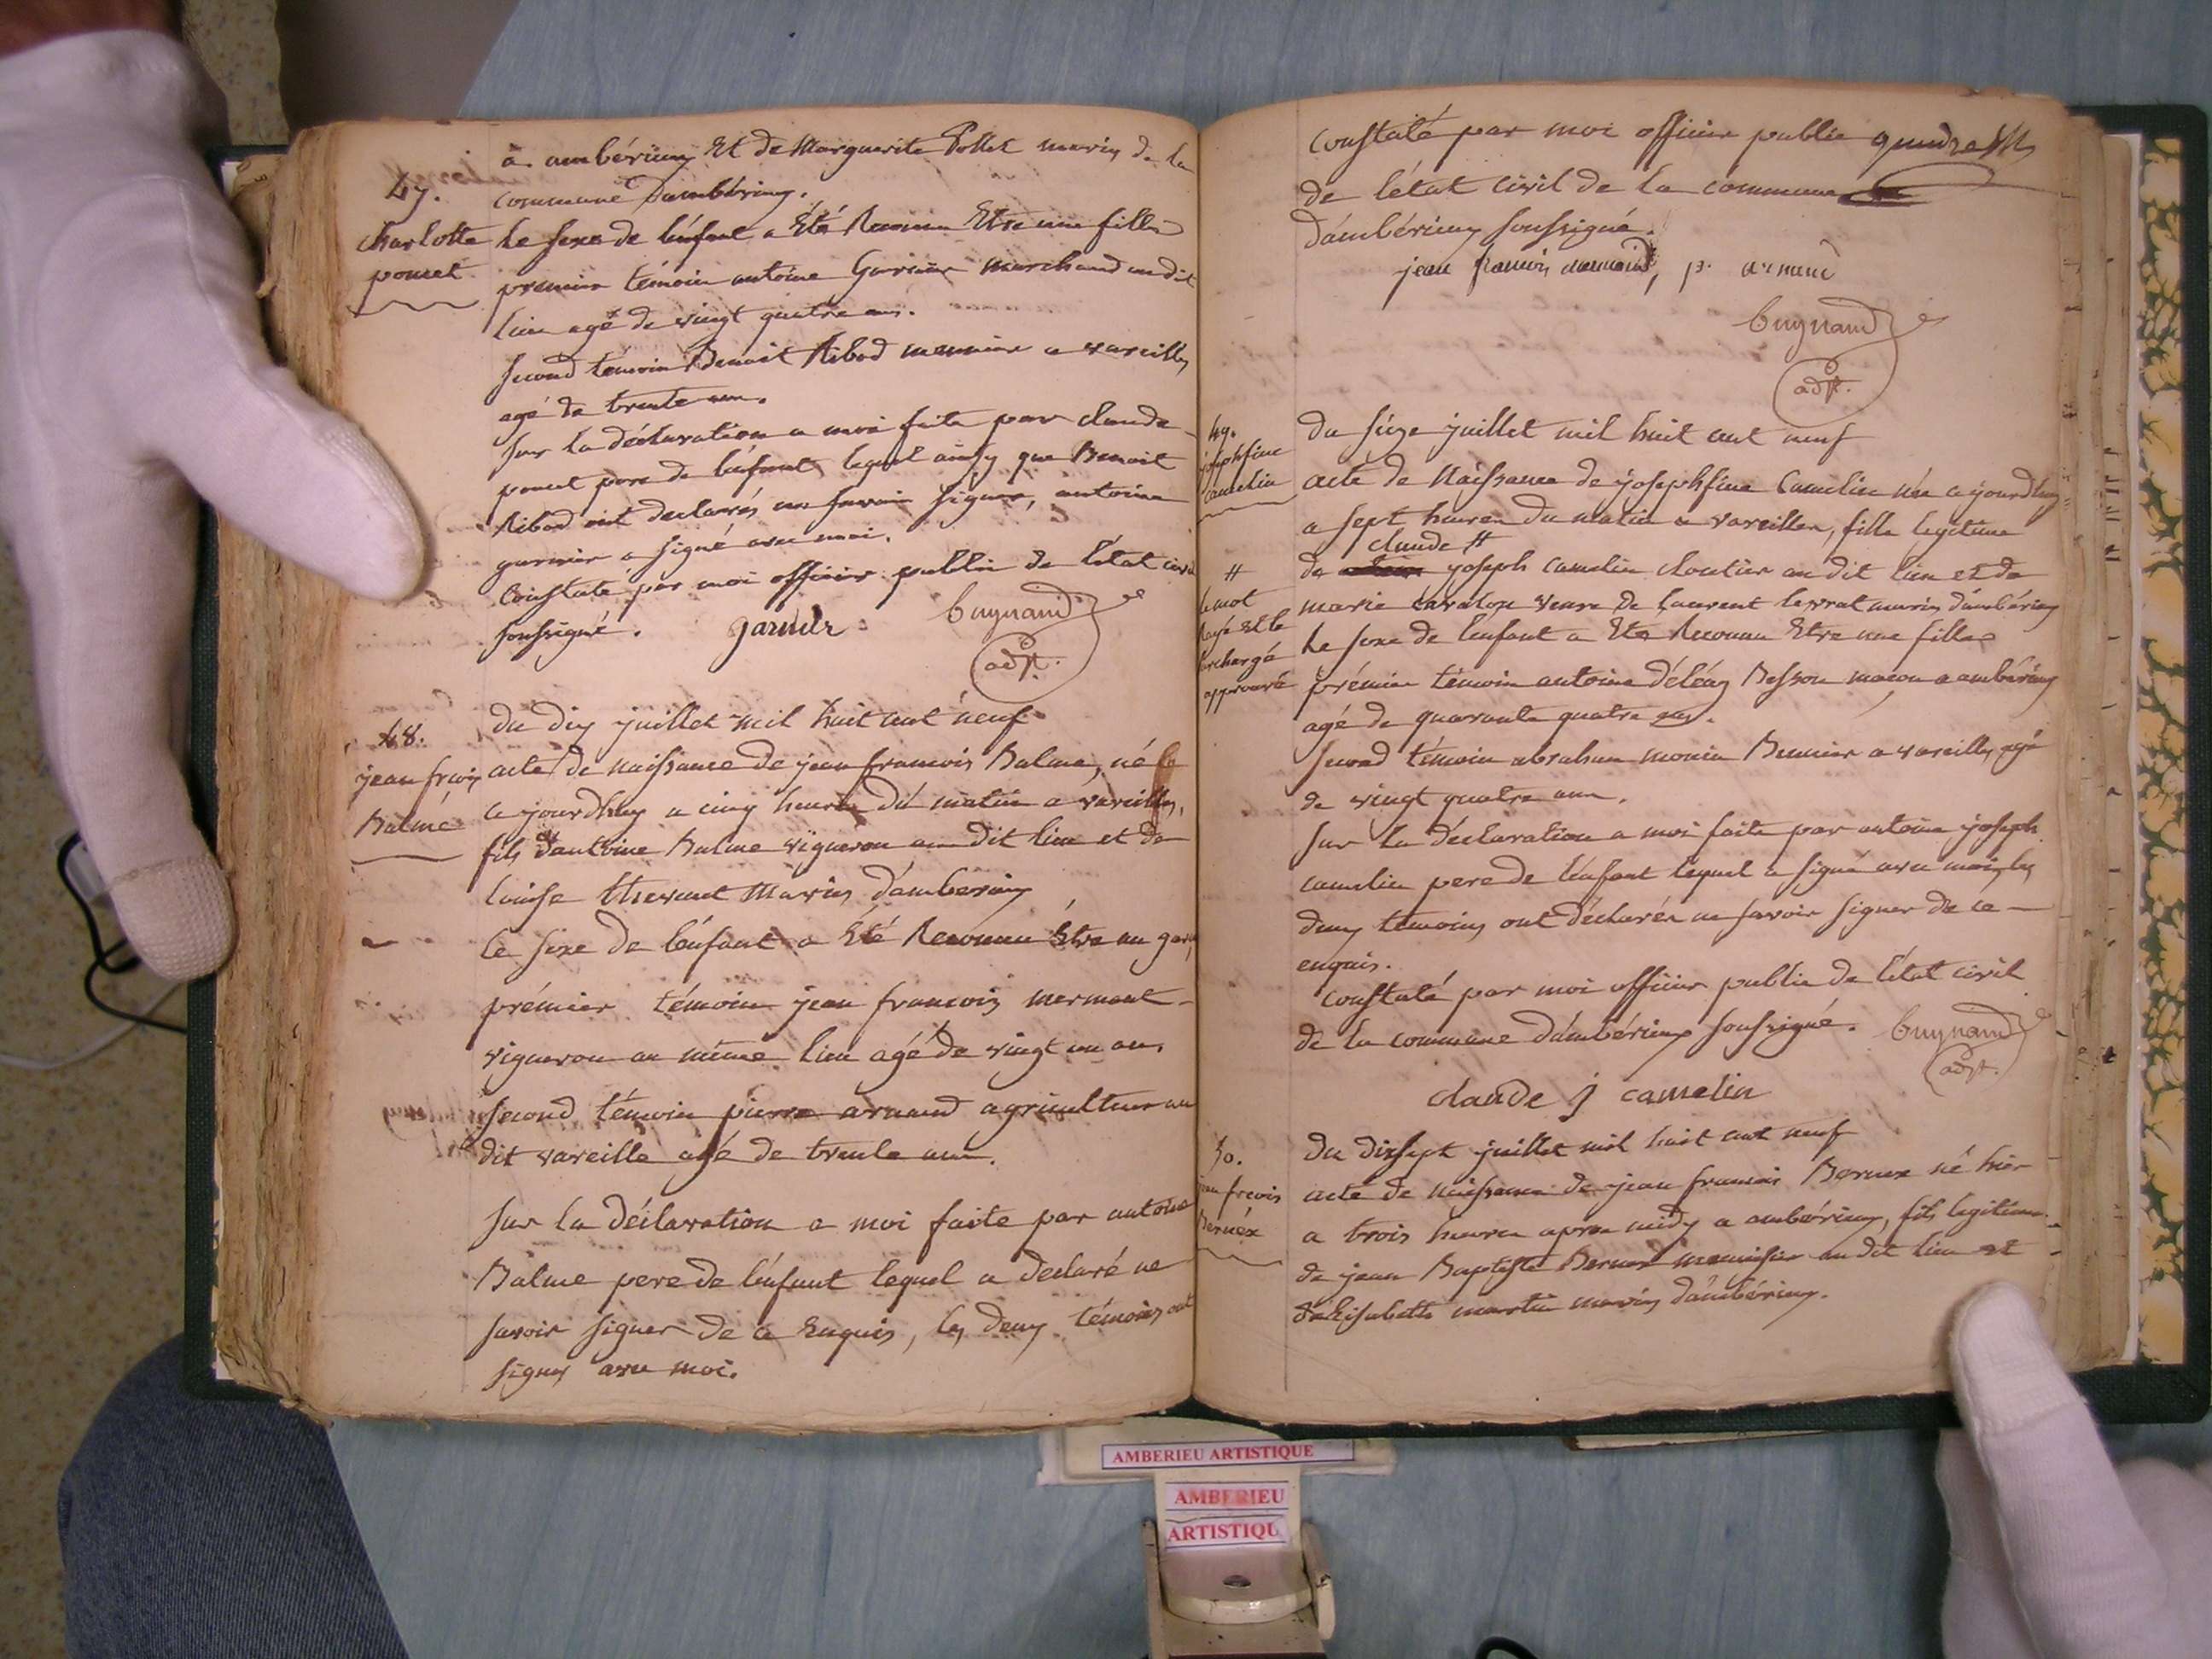 à ambérieux Et de Marguerite Pollet mariés de la
commune dambérieux.
47.
charlotte
poncet
Le sexe de l'enfant a Eté Reconnu Etre une fille
premier témoin antoine Garnier marchand au dit
lieu agé de vingt quatre ans.
second témoin Benoit Ribod meunier a vareilles
agé de trente ans.
sur la déclaration a moi faite par claude
poncet pere de l'enfant, lequel ainsy que Benoit
Ribod ont declarés ne savoir signer, antoine
garnier a signé avec moi.
Constaté par moi officier public de l'état civil
soussigné. garnier bugnand
adjt.
48.
jean frcois
Balme
du dix juillet mil huit cent neuf
acte de naissance de jean francois Balme, né
ce jourdhuy a cinq heures du matin a vareilles,
fils d'antoine Balme vigneron au dit lieu et de
Louise thevenet Mariés d'amberieux
le sexe de l'enfant a Eté Reconnu Etre un garçon
prémier témoin jean francois mermant
vigneron au même lieu agé de vingt un ans
second témoin pierre armand agriculteur au
dit vareille agé de trente ans.
Sur la déclaration a moi faite par antoine
Balme pere de l'enfant lequel a declaré ne
savoir signer de ce Enquis, les deux témoins ont
signés avec moi.
Constaté par moi officier public
de l'état civil de la commune
d'ambérieux soussigné.
jean francois, p. armand
bugnand
adjt.
49.
josephfine
camelin
du seize juillet mil huit cent neuf
acte de Naissance de josephfine Camelin née ce jourdhuy
a sept heures du matin a vareilles, fille legitime
claude #
de joseph camelin cloutier au dit lieu et de
#
le mot
rayé et le
surchargé
approuvé
marie veuve de Laurent levrat mariés d'ambérieux
Le sexe de l'enfant a Eté Reconnu Etre une fille
prémier témoin antoine Besson maçon a ambérieux
agé de quarante quatre ans.
second témoin abraham monin a vareilles agé
de vingt quatre ans.
sur la déclaration a moi faite par antoine joseph
camelin pere de l'enfant lequel a signé avec moi, les
deux témoins ont déclarés ne savoir signer de ce
enquis.
constaté par moi officier public de l'état civil
de la commune d'ambérieux soussigné. bugnand
adjt.
claude j camelin
50.
jean frcois
Bernéx
du dixsept juillet mil huit cent neuf
acte de naissance de jean francois Bernex né hier
a trois heures apres midy a ambérieux, fils legitime
de jean Baptiste Bernex menuisier au dit lieu et
d'elisabeth martin mariés d'ambérieux.
AMBERIEU ARTISTIQUE
AMBERIEU
ARTISTIQU